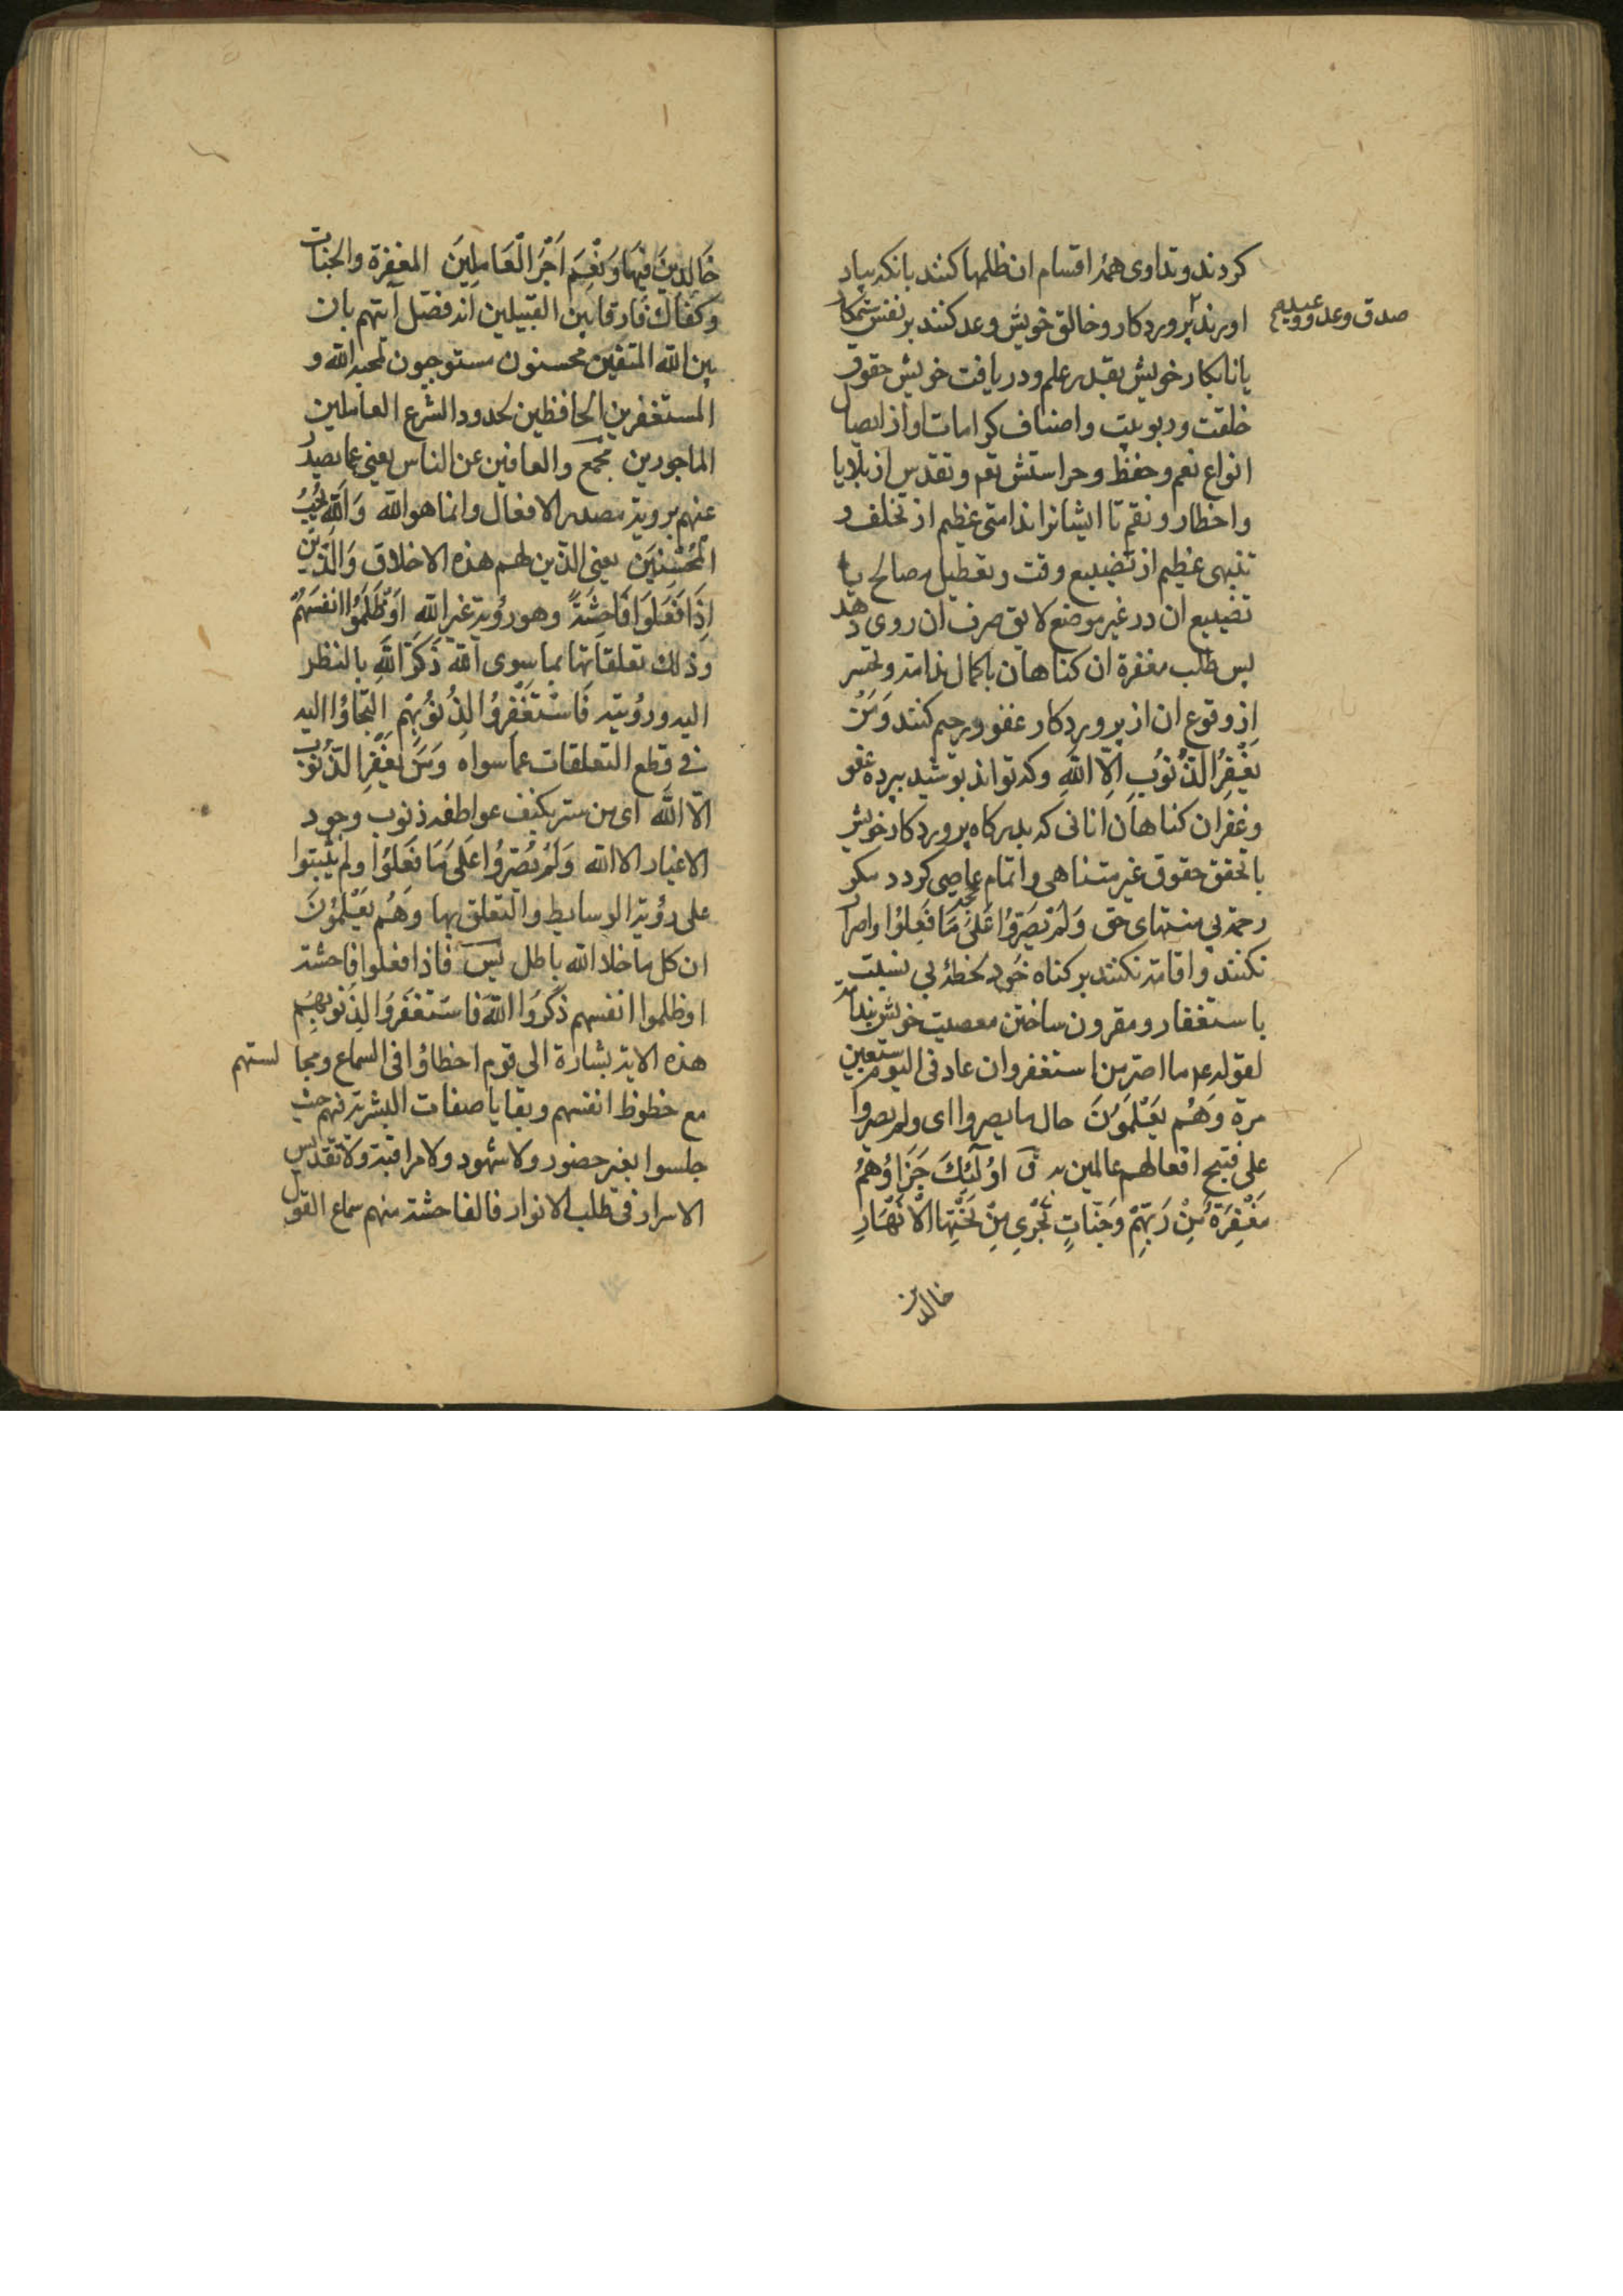 کردند و تداوی همه اقسام ان ظلمها کنند بانکه بیاد
اورند پروردکار و خالق خویش وعد کنند بر نفس ستمکار
صدق وعد و وعید
یا نابکار خویش بقدر علم و دریافت خویش حقوق
خلقت و ربوبیت و اصناف کرامات او از ایصال
انواع نعم و حفظ و حراستش نعم و تقدیس از بلایا
و اخطار و نقم تا ایشانرا ندامتی عظیم از تخلف و
تنبهی عظیم از تضییع وقت و تعطیل مصالح یا
تضییع ان در غیر موضع لایق صرف ان روی دهد
پس طلب مغفرة ان کناهان باکمال ندامة و تحسر
از وقوع ان از پروردکار غفور رحیم کنند وَمَنْ
یَغْفِرُ الذُّنُوُبَ اِلاَّ اللّهِ وکه تواند پوشید بپرده عفو
و غفران کناهان انانی که بدرکاه پروردکار خویش
با تحقق حقوق غیر متناهی و اتمام عاصی کردد مکر
رحمة بی منتهای حق وَلَمْ یُصِرّوُا عَلیٰ مَا فَعِلوُا و اصرار
نکنند و اقامه نکنند بر کناه خود لحظهٔ بی نسبت
باستغفار و مقرون ساختن معصیت خویش بندامة
لقوله عم ما اصر من استغفر وان عاد فی الیوم سبعین
مرة وَهُم یَعْلَمَوُنَ حال ما یصروا ای ولم یصروا
علی قبیح افعالهم عالمین به ق اوُلٓئِكَ جَزَاؤُهُمْ
مَغْفِرَةٌ مِنْ رَبِّهِمْ وَجَنّاتٍ تَجْرِی مِنْ تَحْتِهَا الْاَنْهَارِ
خالدین
خَالِدِینَ فِیهَا وَنِعْمَ اَجْرُ الْعَامِلِینَ المغفرة والجنات
وکفاك فارقا بین القبیلین انه فصل آیتهم بان
بین الله المتقین محسنون مستوجبون لمحبة الله و
المستغفرین الحافظین لحدود الشرع العاملین
الماجورین مجمع والعافین عن الناس یعنی عما یصدر
عنهم برویة مصدر الافعال وانما هو الله وَاللّهُ یُحِبُّ
الْمُحْسِنِیَن یعنی الذین لهم هذه الاخلاق وَالَّذِینَ
اِذَا فَعَلوَا فَاحِشَةً وهو رؤیة غیر الله اَوْظَلَمُوُا انفسَهُمْ
وذلك تعلقاتها بما سوی الله ذَکَرَ اللهِ بالنظر
الیه ورؤیته فَاسْتَغْفِرُوُا لِذُنوُبِهِمْ التجاؤا الیه
فی قطع التعلقات عما سواه وَمَنَ یَغْفِر الذُّنوُبَ
الاّ الله ای من ستر بکنف عواطفه ذنوب وجود
الاغیار الا الله وَلَمْ یُصّروُا عَلَیٰ مَا فَعَلوُا ولم یثبتوا
علی رؤیة الوسایط والتعلق بها وَهُم یَعْلَمُونَ
ان کل ما خلا الله باطل س فاذا فعلوا فاحشة
او ظلموا انفسهم ذَکَرَوُا اللّهَ فَاسَتَغفَروُا لِذِنوُبِهِم
هذه الایة بشارة الی قوم اخطاؤا فی السماع ومجالستهم
مع حظوظ انفسهم وبقایا صفات البشریة فیهم حیث
جلسوا بغیر حضور ولا شهود ولا مراقبة ولا تقدیس
الاسرار فی طلب الانوار فالفاحشة منهم سماع القول